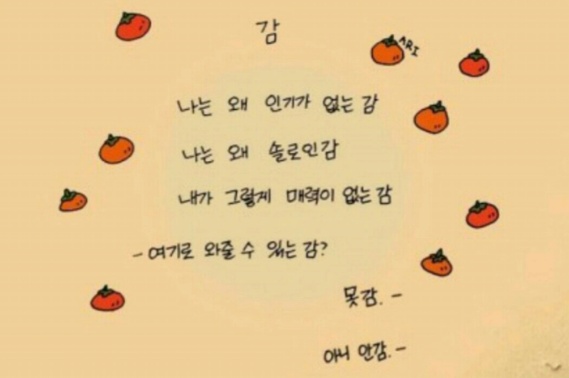 감
ARI
나는 왜 인기가 없는 감
나는 왜 쏠로인감
내가 그렇게 매력이 없는 감
- 여기로 와줄 수 있는 감?
못감. -
아니 안감. -